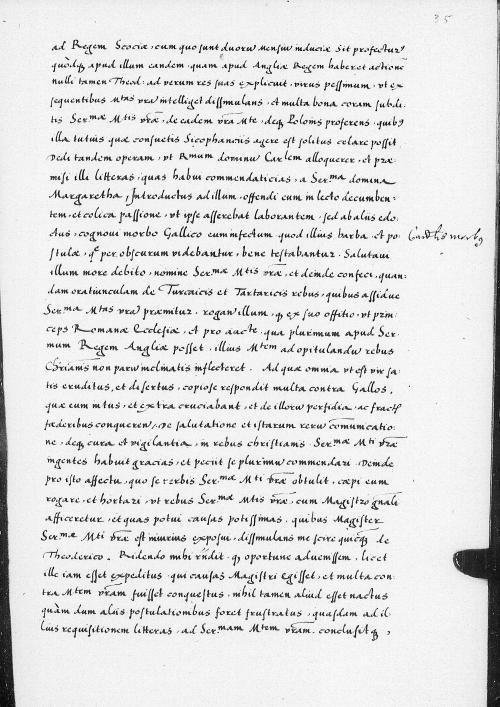 35
ad Regem Scociæ, cum quo sunt duorum mensium induciæ sit profecturus
quodque apud illum eandem, quam apud Angliæ Regem haberet actionem
nulli tamen Theod: ad verum res suas explicuit, virus pessimum, ut ex
sequentibus Mtas vra intelliget dissimulans, et multa bona coram subdi-
tis Sermæ Mtis vræ, de eadem vra Mte, deque Polonis proferens, quibus
illa tutius quæ consuetis Sicophanciis agere est solitus celare possit
Dedi tandem operam, ut Rmum dominum Carlem alloquerer, et præ-
misi illi litteras, quas habui commendaticias, a Serma domina
Margaretha, Introductus ad illum, offendi eum in lecto decumben-
tem, et colica passione, ut ipse asserebat laborantem, sed ab aliis edo-
ctus, cognovi morbo Gallico eum infectum quod illius barba et po-
Cardlis morbus
stulæ, quæ per obscurum videbantur, bene testabantur. Salutavi
illum more debito, nomine Sermæ Mtis vræ, et deinde confeci, quan-
dam oratiunculam de Turcaicis et Tartaricis rebus, quibus assidue
Serma Mtas vra præmitur, rogans illum, que ex suo offitio, ut prin-
ceps Romanæ Ecclesiæ, et pro aucte qua plurimum apud Ser-
mum Regem Angliæ posset, illius Mtem ad opitulandum rebus
Chrianis non parum inclinatis inflecteret. Ad quæ omnia ut est vir sa-
tis eruditus, et disertus, copiose respondit multa contra Gallos,
quæ eum intus, et extra cruciabant, et de illorum perfidia, ac fracti
fœderibus conquerens, De salutatione et istarum rerum communicatio-
ne, deque cura et vigilantia, in rebus christianis Sermæ Mti vræ
ingentes habuit gracias, et peciit se plurimum commendari. Deinde
pro isto affectu, quo se verbis Sermæ Mti vræ obtulit, cæpi eum
rogare, et hortari, ut rebus Sermæ Mtis vræ, cum Magistro gnali
afficeretur, et quas potui causas potissimas, quibus Magister
Sermæ Mti vræ est iniurius exposui, dissimulans me scire quicque de
Theoderico. Ridendo mihi rndit, que oportune advenissem, licet
ille iam esset expeditus, qui causas Magistri egisset, et multa con-
tra Mtem vram fuisset conquestus, nihil tamen aliud esset nactus
quam dum aliis postulationibus foret frustratus, quasdam ad il-
lius requisitionem litteras, ad Sermam Mtem vram. conclusitque,